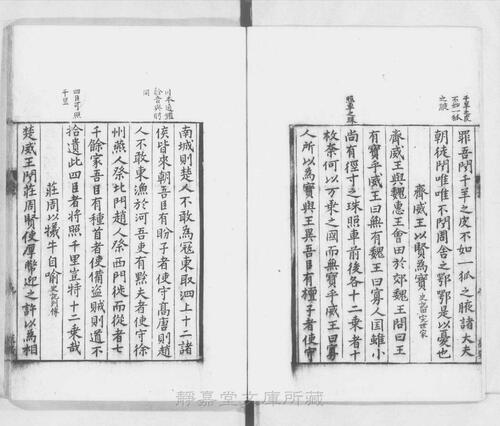 罪吾聞千羊之皮不如一狐之腋諸大夫
朝徒聞唯唯不聞周舍之鄂鄂是以憂也
齊威王以賢為寶
齊威王與魏惠王會田於郊魏王問曰王
有寶乎威王曰無有魏王曰寡人國雖小
尚有徑寸之珠照車前後各十二乘者十
枚柰何以万乘之國而無寶乎威王曰寡
人所以為寶與王異吾臣有檀子者使守
南城則楚人不敢為寇東取泗上十二諸
侯皆來朝吾臣有盼子者使守高唐則趙
人不敢東漁於河吾吏有黔夫者使守徐
州燕人祭北門趙人祭西門徙而從者七
千餘家吾臣有種首者使備盜賊則道不
拾遺此四臣者將照千里豈特十二乘哉
莊周以犧牛自喻
楚威王聞莊周賢使厚幣迎之許以為相
千羊之皮
不如一狐
之腋
照車之珠
四臣可照
千里
靜嘉堂文庫所藏